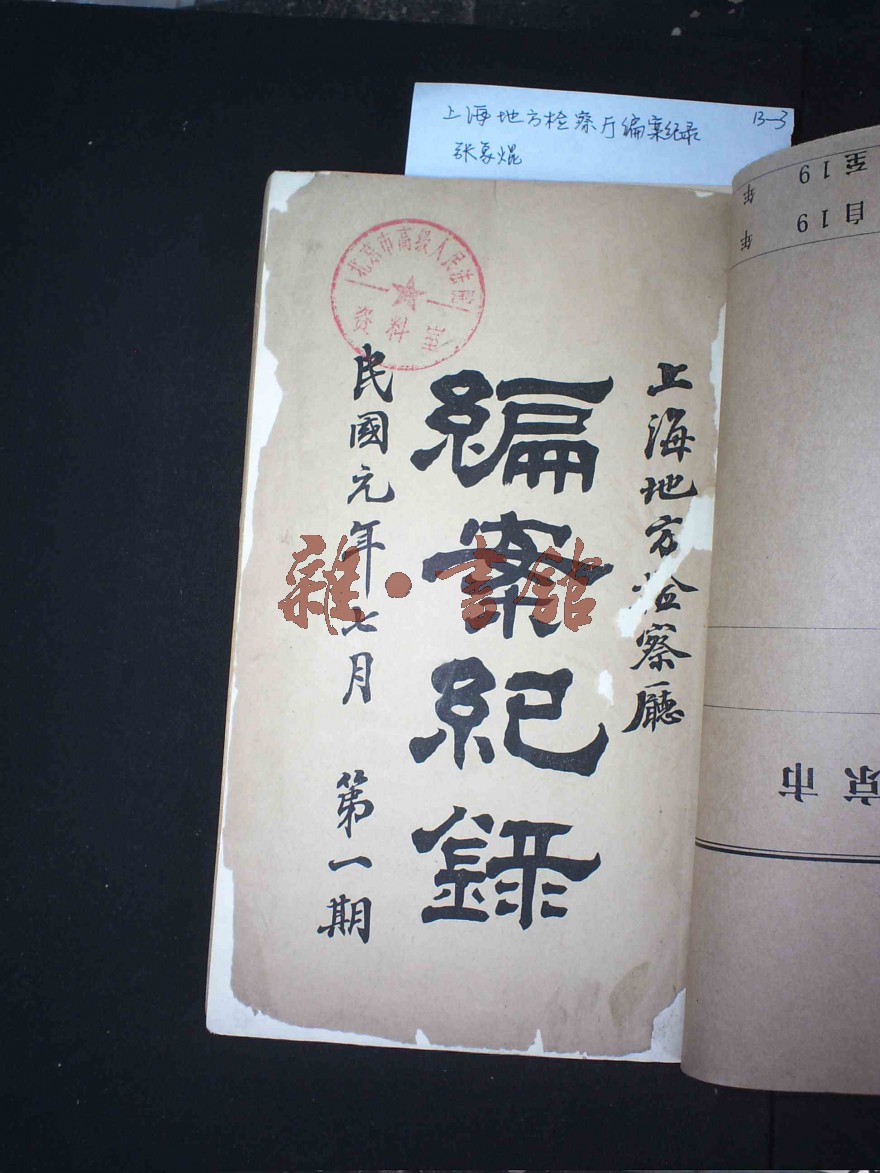 上海地方检察厅编案纪录 13-3
张象焜
上海地方檢察廳
編案紀錄
民國元年七月 第一期
北京市高级人民法院
资料
雜·書館
至19 年
自19 年
京市